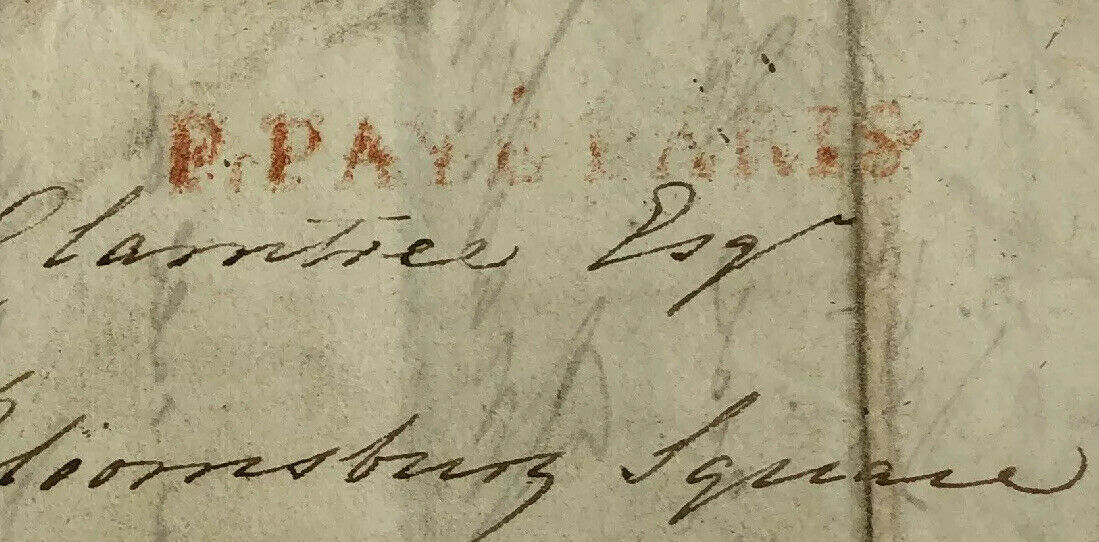 P. PAYÉ PARIS
Plamtree Esqr
Bloomsbury Square